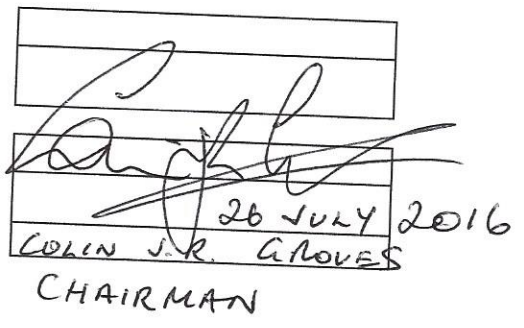 26 JULY 2016
COLIN J.R. GROVES
CHAIRMAN